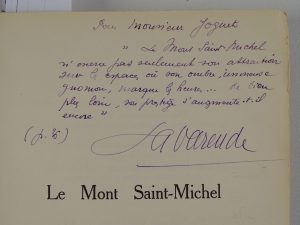 Pour Monsieur Joguet
" Le Mont Saint-Michel
n'exerce pas seulement son attraction
sur l'espace où son ombre, immense
gnomon, marque l'heure... de bien
plus loin, son prestige s'augmente-t-il
encore "
(p. )
La Varende
Le Mont Saint-Michel